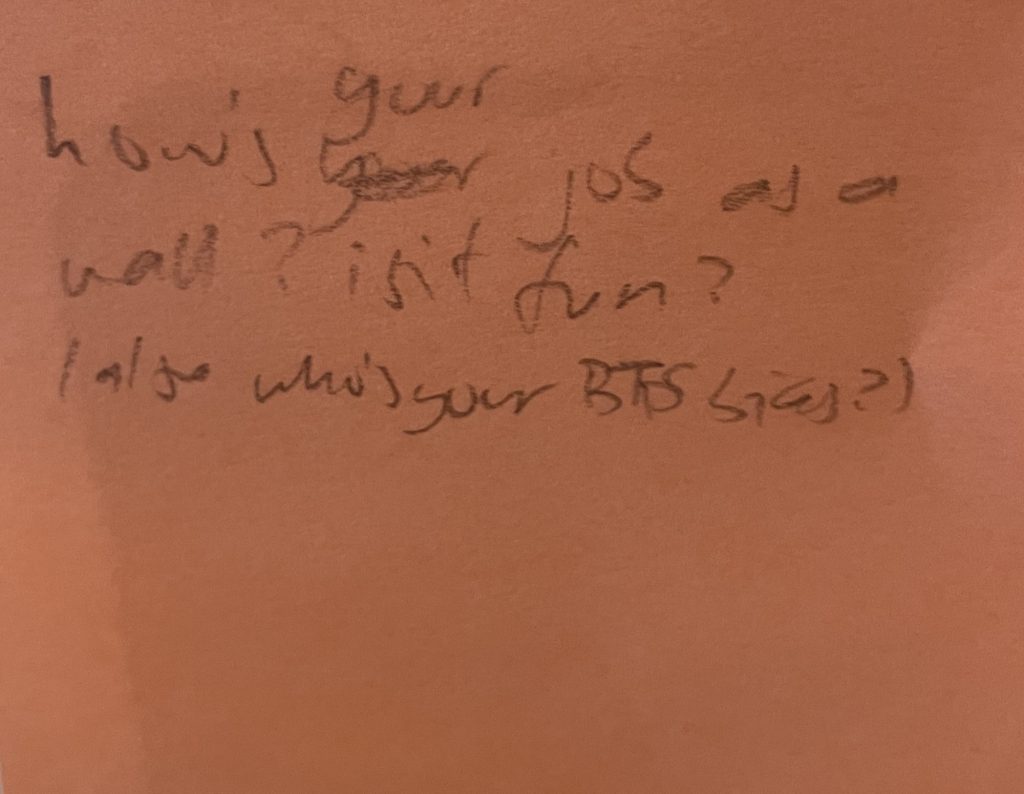 how's your job as a
wall? is it fun?
(also who's your BTS bias?)